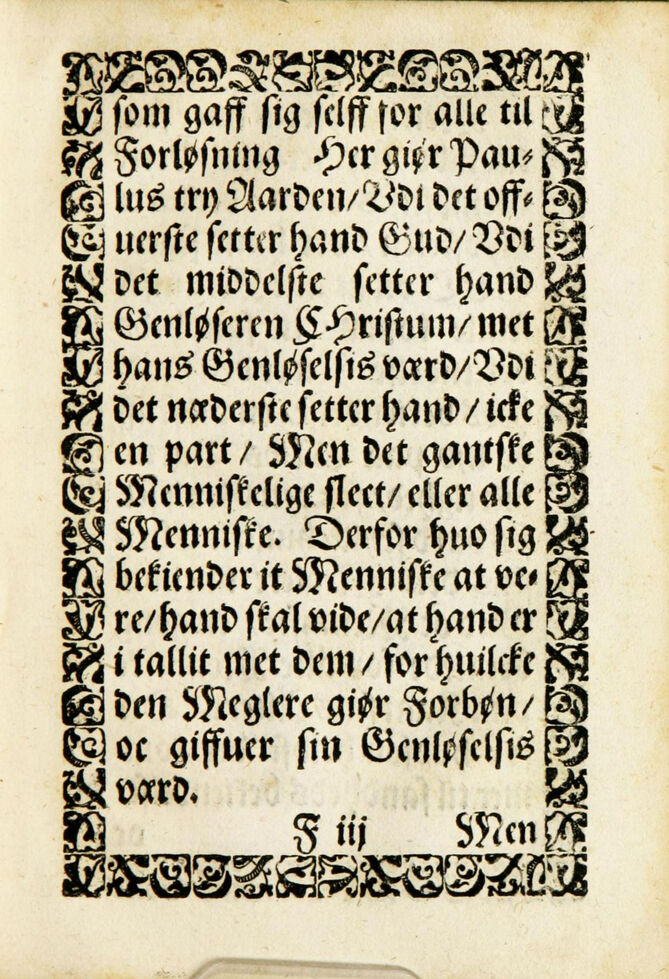 som gaff sig selff for alle til
Forløsning Her giør Pau⸗
lus try Aarden/Vdi det off⸗
uerste setter hand Gud/ Vdi
det middelste setter hand
Genløseren CHristum/ met
hans Genløselsis værd/Vdi
det næderste setter hand / icke
en part / Men det gantske
Menniskelige slect/ eller alle
Menniske. Derfor huo sig
bekiender it Menniske at ve⸗
re/hand skal vide/at hand er
i tallit met dem / for huilcke
den Meglere giør Forbøn/
oc giffuer sin Genløselsis
værd.
F iij Men